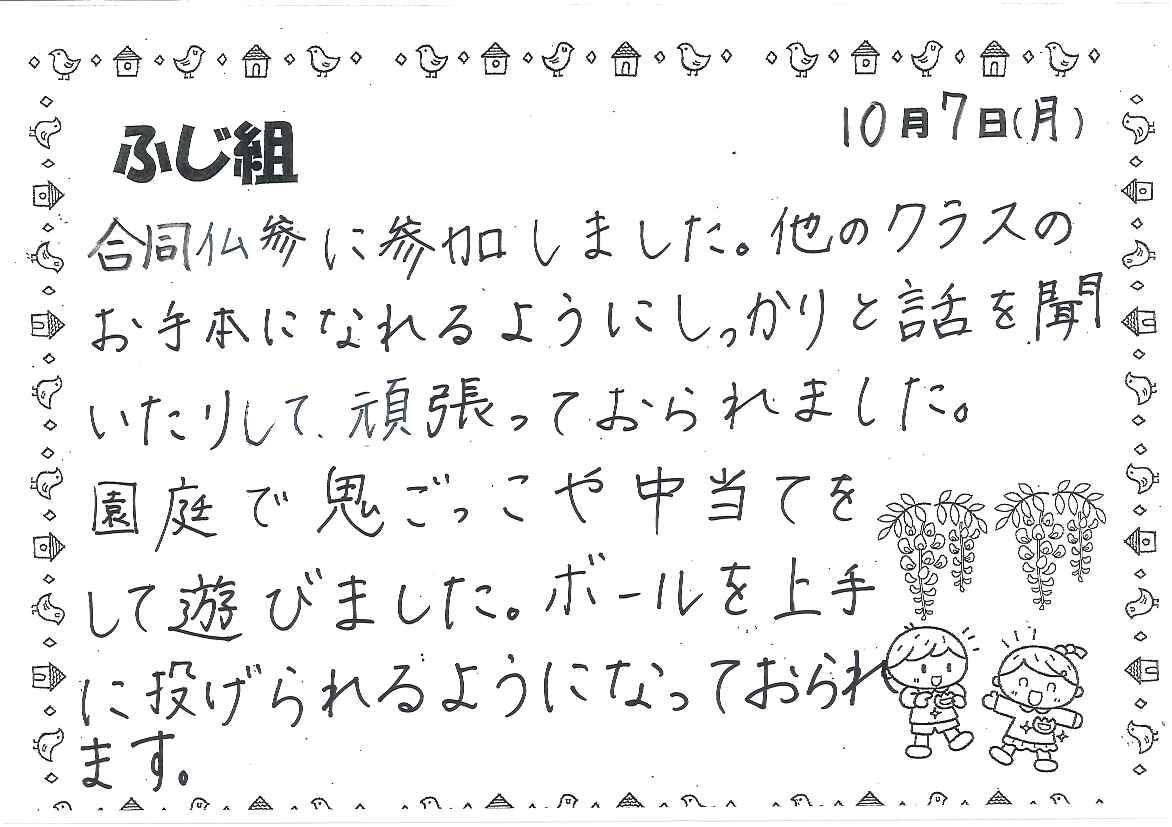 10月7日(月)
ふじ組
合同仏参に参加しました。他のクラスの
お手本になれるようにしっかりと話を聞
いたりして、頑張っておられました。
園庭で鬼ごっこや中当てを
して遊びました。ボールを上手
に投げられるようになっておられ
ます。